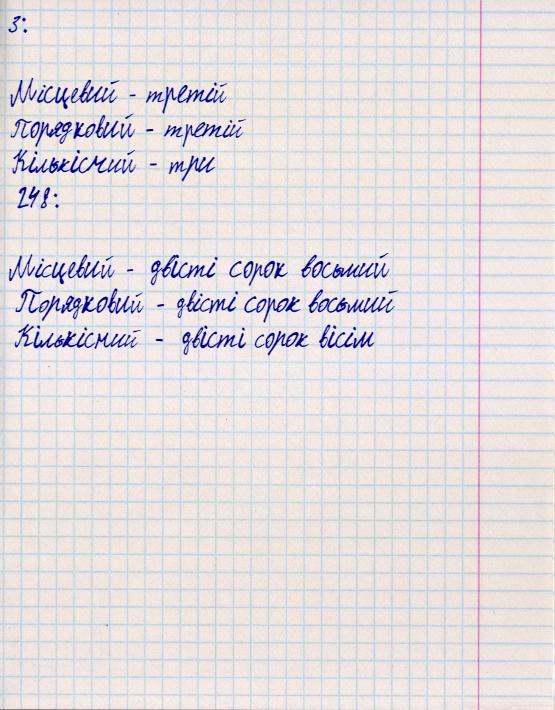 3:
Місцевий - третій
Порядковий - третій
Кількісний - три
248:
Місцевий - двісті сорок восьмий
Порядковий - двісті сорок восьмий
Кількісний - двісті сорок вісім